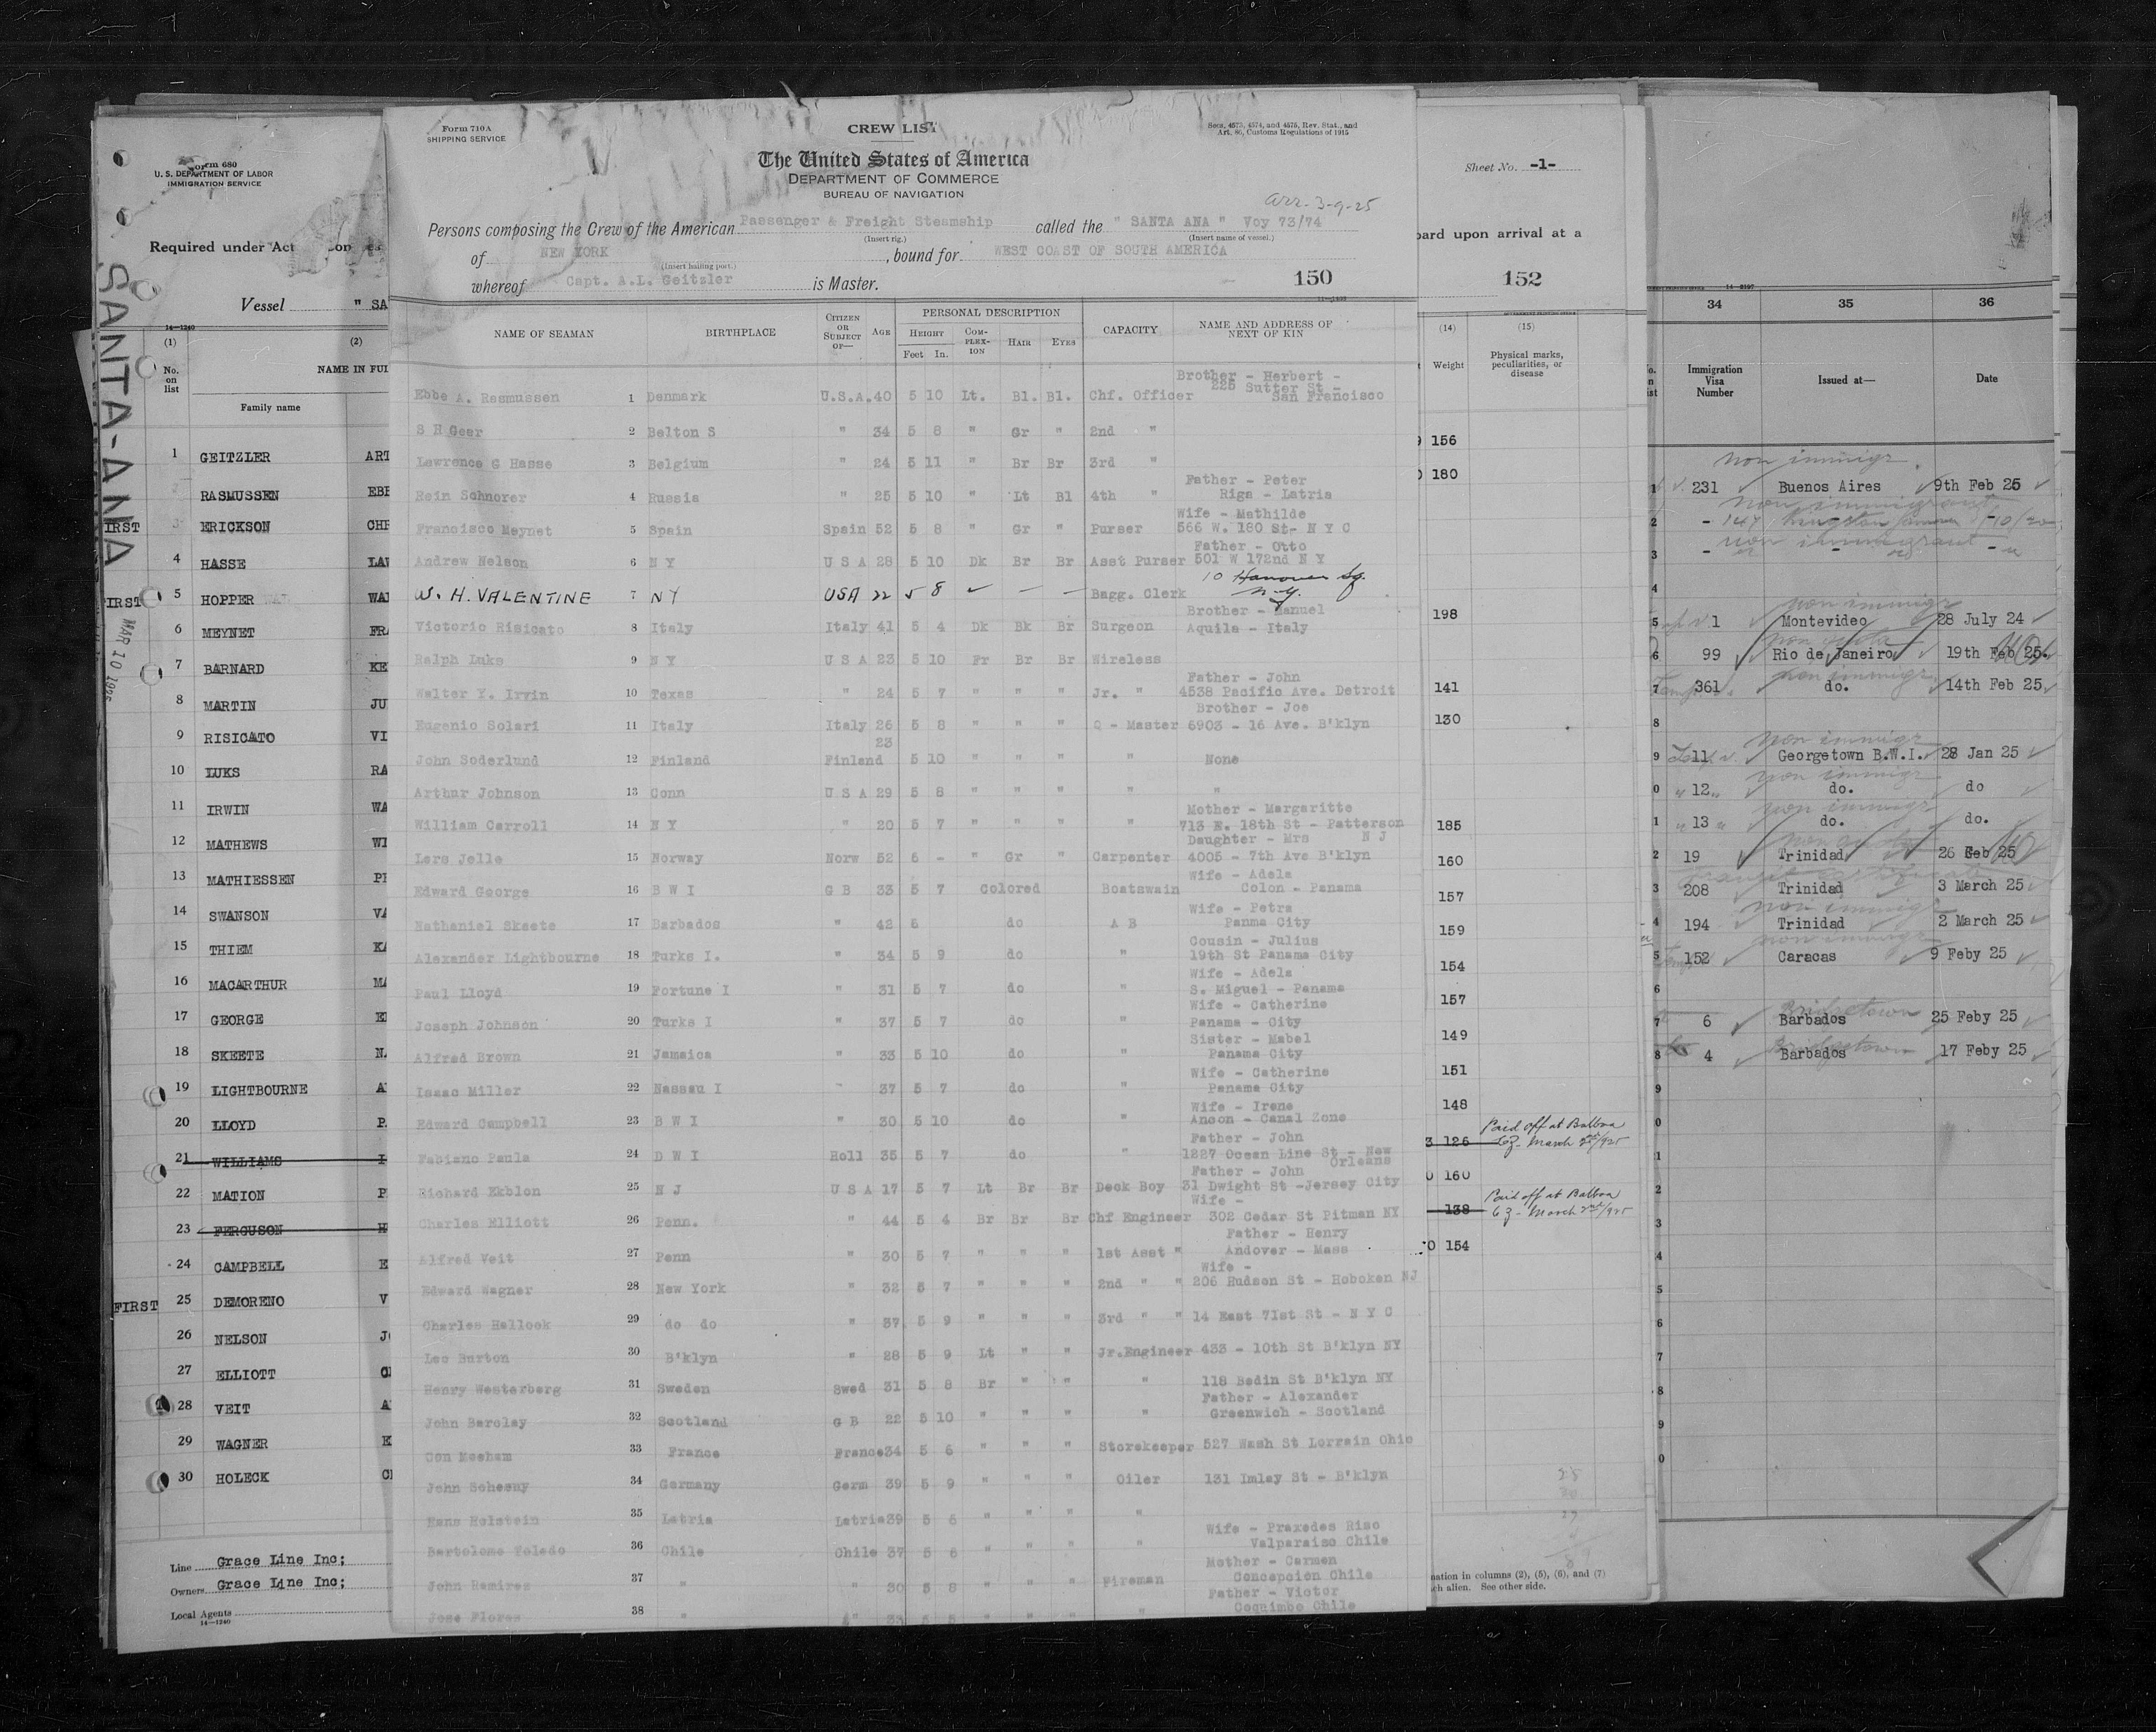 Form 680
U. S. DEPARTMENT OF LABOR
IMMIGRATION SERVICE
Required under Act
SANTA-ANA
Vessel " SA
14—1240
(1) (2)
No. on list
NAME IN FUL
Family name
1 GEITZLER ART
RASMUSSEN EBB
IRST 3 ERICKSON CHR
4 HASSE LAW
IRST 5 HOPPER WAL
MAR 10 1925
6 MEYNET FRA
7 BARNARD KE
8 MARTIN JU
9 RISICATO VI
10 LUKS RA
11 IRWIN WA
12 MATHEWS WI
13 MATHIESSEN PE
14 SWANSON VA
15 THIEM KA
16 MACARTHUR MA
17 GEORGE E
18 SKEETE N
19 LIGHTBOURNE A
20 LLOYD P
21 WILLIAMS
22 MATION P
23 FERGUSON H
24 CAMPBELL E
FIRST 25 DEMORENO V
26 NELSON JO
27 ELLIOTT C
28 VEIT A
29 WAGNER E
30 HOLECK C
Line Grace Line Inc;
Owners Grace Line Inc;
Local Agents
14—1240
Form 710A
SHIPPING SERVICE
CREW LIST
Secs. 4573, 4574, and 4575, Rev. Stat., and
Art. 86, Customs Regulations of 1915
The United States of America
DEPARTMENT OF COMMERCE
BUREAU OF NAVIGATION
arr. 3-9-25
Persons composing the Crew of the American Passenger & Freight Steamship called the " SANTA ANA " Voy 73/74
(Insert rig.) (Insert name of vessel.)
of NEW YORK , bound for WEST COAST OF SOUTH AMERICA
(Insert hailing port.)
whereof Capt. A.L. Geitzler is Master. 150
NAME OF SEAMAN BIRTHPLACE CITIZEN OR SUBJECT OF— AGE PERSONAL DESCRIPTION CAPACITY NAME AND ADDRESS OF NEXT OF KIN
HEIGHT COM-PLEX-ION HAIR EYES
Feet In.
Brother - Herbert -
225 Sutter St -
Ebbe A. Rasmussen 1 Denmark U.S.A. 40 5 10 Lt. Bl. Bl. Chf. Officer San Francisco
S H Geer 2 Belton S " 34 5 8 " Gr " 2nd "
Lawrence G Hasse 3 Belgium " 24 5 11 " Br Br 3rd "
Father - Peter
Rein Schnorer 4 Russia " 25 5 10 " Lt Bl 4th " Riga - Latria
Wife - Mathilde
Francisco Meynet 5 Spain Spain 52 5 8 " Gr " Purser 566 W. 180 St- N Y C
Father - Otto
Andrew Nelson 6 N Y U S A 28 5 10 Dk Br Br Asst Purser 501 W 172nd N Y
10 Hanover Sq.
W. H. VALENTINE 7 NY USA 22 5 8 ✓ — — Bagg. Clerk N.Y.
Brother - Manuel
Victorio Risicato 8 Italy Italy 41 5 4 Dk Bk Br Surgeon Aquila - Italy
Ralph Luks 9 N Y U S A 23 5 10 Fr Br Br Wireless
Father - John
Walter Y. Irvin 10 Texas " 24 5 7 " " " Jr. " 4538 Pacific Ave. Detroit
Brother - Joe
Eugenio Solari 11 Italy Italy 26 5 8 " " " Q - Master 6903 - 16 Ave. B'klyn
23
John Soderlund 12 Finland Finland 5 10 " " " " None
Arthur Johnson 13 Conn U S A 29 5 8 " " " " "
Mother - Margaritte
William Carroll 14 N Y " 20 5 7 " " " " 713 E. 18th St - Patterson
Daughter - Mrs N J
Lars Jelle 15 Norway Norw 52 6 - " Gr " Carpenter 4005 - 7th Ave B'klyn
Wife - Adela
Edward George 16 B W I G B 33 5 7 Colored Boatswain Colon - Panama
Wife - Petra
Nathaniel Skeete 17 Barbados " 42 5 do A B Panma City
Cousin - Julius
Alexander Lightbourne 18 Turks I. " 34 5 9 do " 19th St Panama City
Wife - Adela
Paul Lloyd 19 Fortune I " 31 5 7 do " S. Miguel - Panama
Wife - Catherine
Joseph Johnson 20 Turks I " 37 5 7 do " Panama - City
Sister - Mabel
Alfred Brown 21 Jamaica " 33 5 10 do " Panama City
Wife - Catherine
Isaac Miller 22 Nassau I " 37 5 7 do " Panama City
Wife - Irene
Edward Campbell 23 B W I " 30 5 10 do " Ancon - Canal Zone
Father - John
Fabiano Paula 24 D W I Holl 35 5 7 do " 1227 Ocean Line St - New Orleans
Father - John
Richard Ekblon 25 N J U S A 17 5 7 Lt Br Br Deck Boy 31 Dwight St -Jersey City
Wife -
Charles Elliott 26 Penn. " 44 5 4 Br Br Br Chf Engineer 302 Cedar St Pitman NY
Father - Henry
Alfred Veit 27 Penn " 30 5 7 " " " 1st Asst " Andover - Mass
Wife -
Edward Wagner 28 New York " 32 5 7 " " " 2nd " " 206 Hudson St - Hoboken NJ
Charles Hallock 29 do do " 37 5 9 " " " 3rd " " 14 East 71st St - N Y C
Leo Burton 30 B'klyn " 28 5 9 Lt " " Jr.Engineer 433 - 10th St B'klyn NY
Henry Westerberg 31 Sweden Swed 31 5 8 Br " " " 118 Bedin St B'klyn NY
Father - Alexander
John Barclay 32 Scotland G B 22 5 10 " " " " Greenwich - Scotland
Con Meeham 33 France France 34 5 6 " " " Storekeeper 527 Wash St Lorrain Ohio
John Schesny 34 Germany Germ 39 5 9 " " " Oiler 131 Imlay St - B'klyn
Hans Holstein 35 Latria Latria 39 5 6 " " " "
Wife - Praxedes Riso
Bartolome Toledo 36 Chile Chile 37 5 6 " " " " Valparaiso Chile
Mother - Carmen
John Ramirez 37 " " 30 5 8 " " " Fireman Concepcion Chile
Father - Victor
Jose Flores 38 " " 33 5 5 " " " " Coquimbo Chile
Sheet No. -1-
oard upon arrival at a
152
(14) (15)
Weight Physical marks, peculiarities, or disease
156
180
198
141
130
185
160
157
159
154
157
149
151
148
126 Paid off at Balboa CZ - March 2nd/925
160
138 Paid off at Balboa CZ - March 2nd/925
154
mation in columns (2), (5), (6), and (7)
ch alien. See other side.
34 35 36
Immigration Visa Number Issued at— Date
non immigr.
1 231 Buenos Aires 9th Feb 25
non immigrant
2 147 Kingston
non immigrant
3
4
non immigr
5 1 Montevideo 28 July 24
non quota
6 99 Rio de Janeiro 19th Feb 25.
non immigr
7 361 do. 14th Feb 25
8
non immigr
9 11 Georgetown B.W.I. 28 Jan 25
non immigr
0 " 12 " do. do
non immigr
1 " 13 " do. do.
2 19 Trinidad 26 Feb 25
3 208 Trinidad 3 March 25
non immigr
4 194 Trinidad 2 March 25
non immigr
5 152 Caracas 9 Feby 25
6
Bridgetown
7 6 Barbados 25 Feby 25
Bridgetown
8 4 Barbados 17 Feby 25
9
0
1
2
3
4
5
6
7
8
9
0